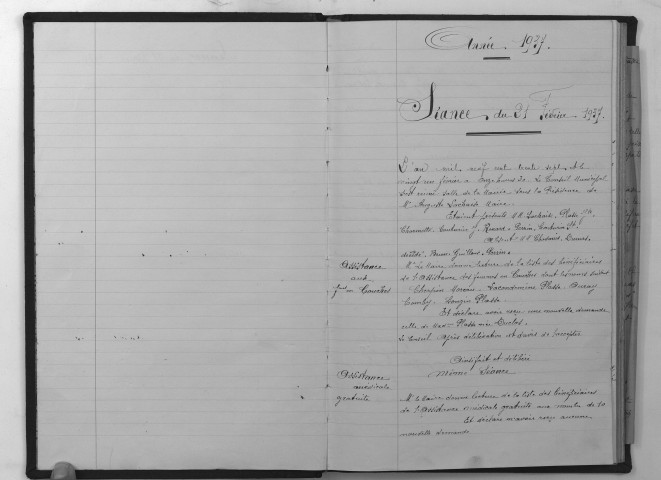 Année 1937.
Séance du 21 Février 1937.
L'an mil neuf cent trente sept et le
vingt un février à onze heures 30. Le Conseil Municipal
s'est réuni salle de la Mairie sous la Présidence de
Mr Auguste Lachaize Maire.
Etaient présents MM. Lachaize, Platte
Absent MM
Assistance
aux
fmes en Couches
Mr le Maire donne lecture de la liste des bénéficiaires
de l'Assistance des femmes en Couches dont les noms suivent
Platte
Platte
Et déclare avoir reçu une nouvelle demande
celle de Mad Platte née
Le Conseil après délibération est d'avis de l'accepter
Ainsi fait et délibéré
Même Séance
Assistance
médicale
gratuite
Mr le Maire donne lecture de la liste des bénéficiaires
de l'Assistance médicale gratuite au nombre de 10
Et déclare n'avoir reçu aucune
nouvelle demande